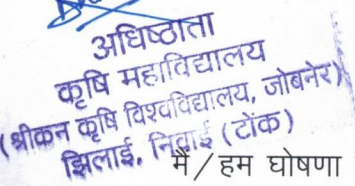 अधिष्ठाता
कृषि महाविद्यालय
(श्रीकर्न कृषि विश्वविद्यालय, जोबनेर)
झिलाई, निवाई (टोंक)
मैं/हम घोषणा